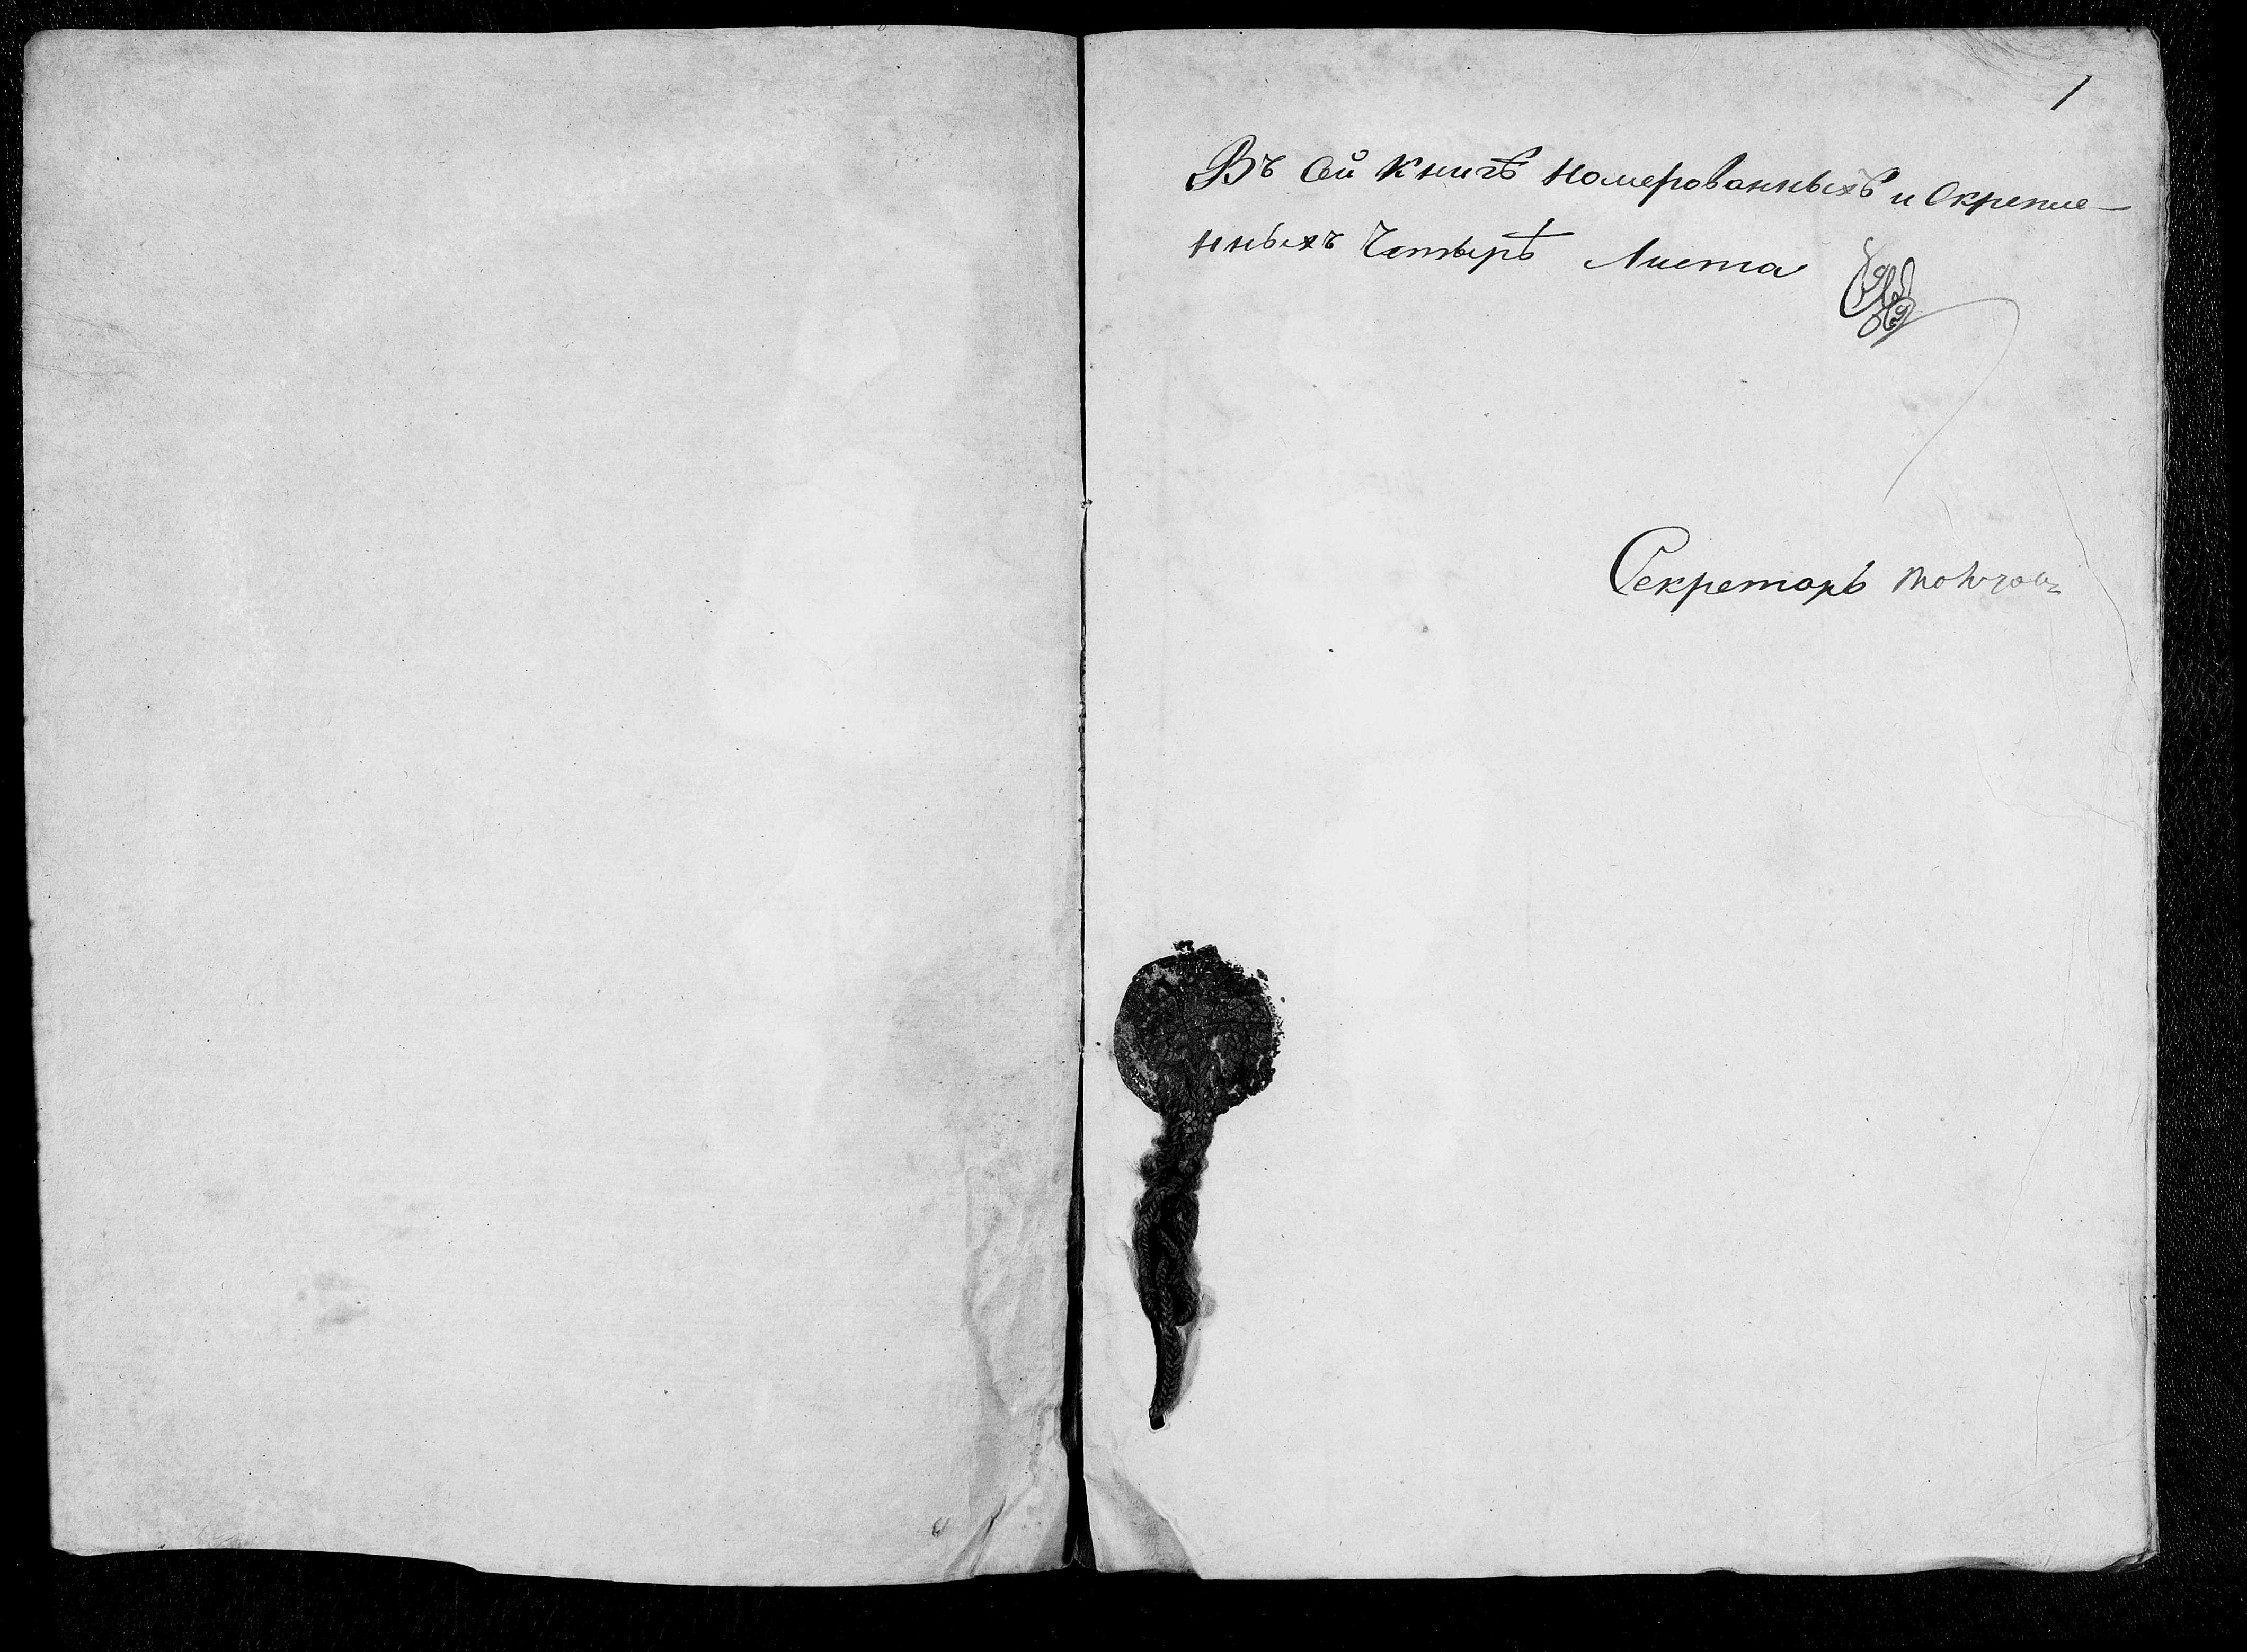 1
Въ Сей Книгѣ Номерованныхъ и Скрепле-
нныхъ Четырѣ Листа
Секретарь